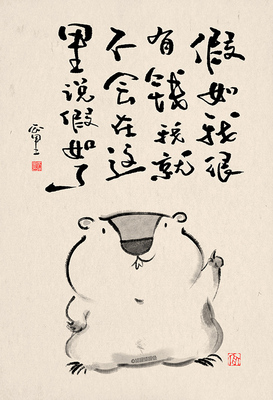 假如我很
有钱我就
不会在这
里说假如了